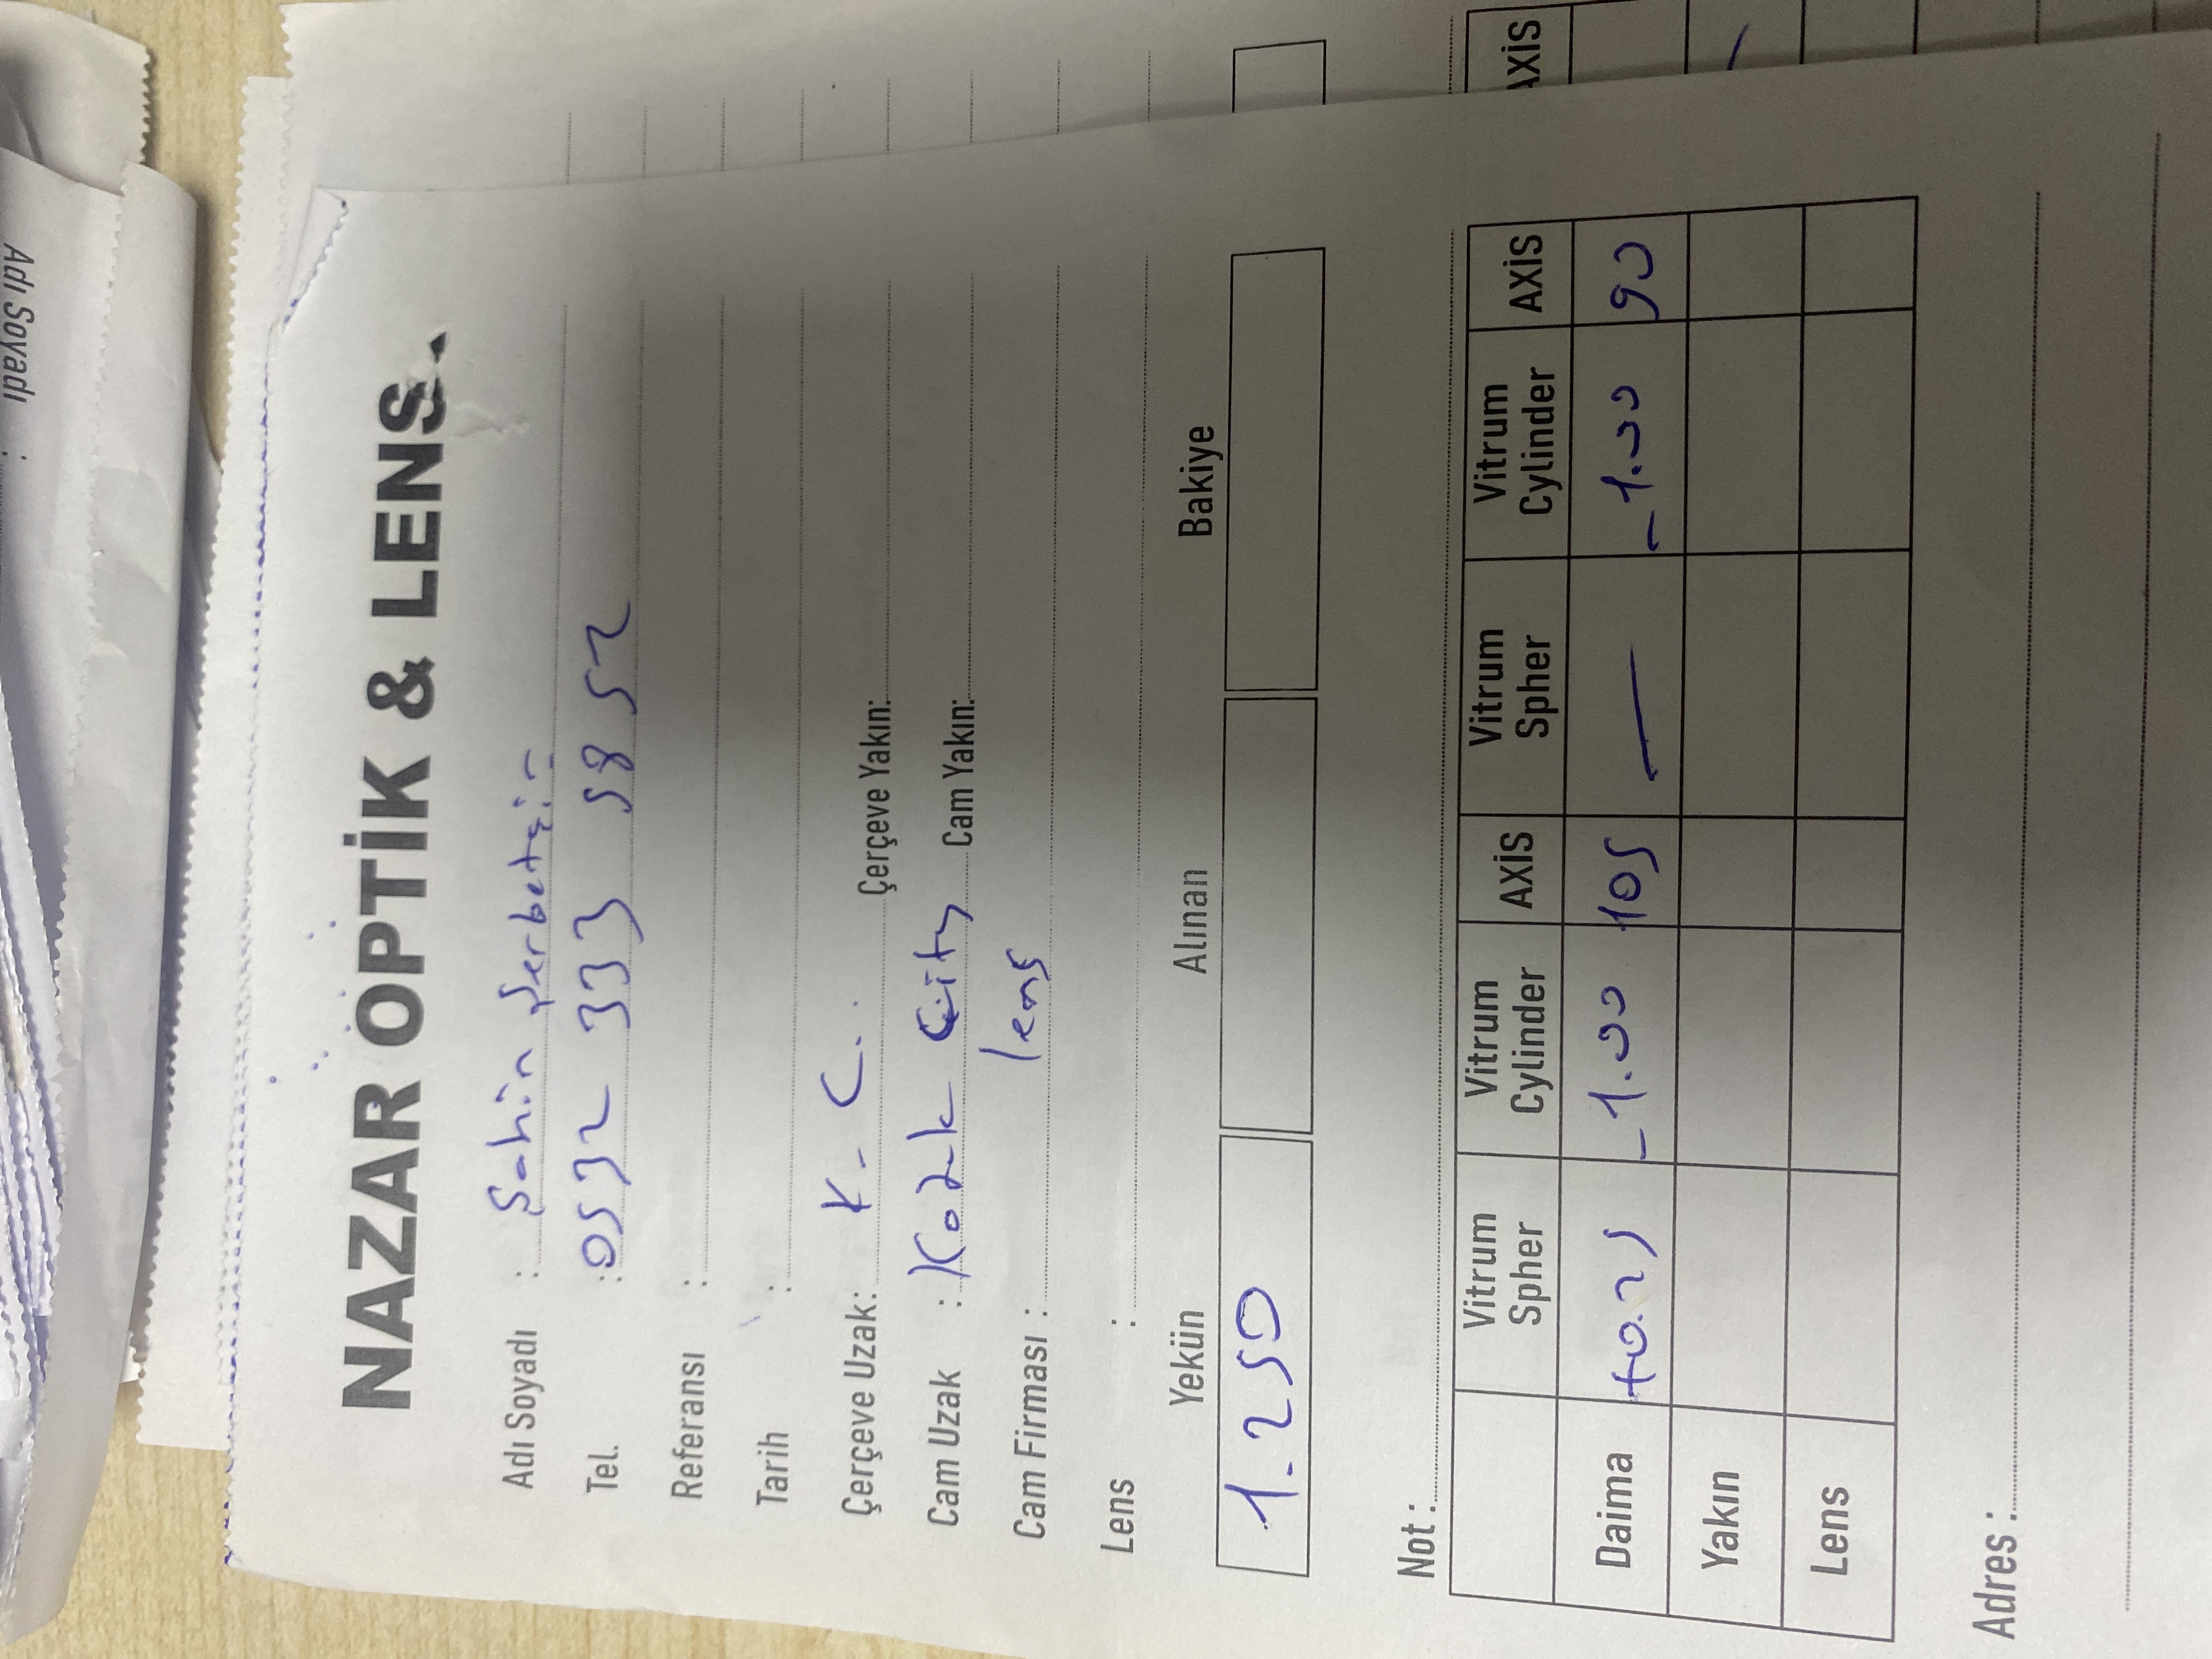 Adı Soyadı :
NAZAR OPTİK & LENS
Adı Soyadı : Şahin Şerbetçi
Tel. : 0532 333 5852
Referansı :
Tarih :
Çerçeve Uzak: K-C. Çerçeve Yakın:
Cam Uzak : City Cam Yakın:
lens
Cam Firması :
Lens :
Yekün Alınan Bakiye
1.250
Not :
Vitrum Spher Vitrum Cylinder AXİS Vitrum Spher Vitrum Cylinder AXİS AXİS
Daima +0.25 -1.00 105 — -1.00 90
Yakın
Lens
Adres :